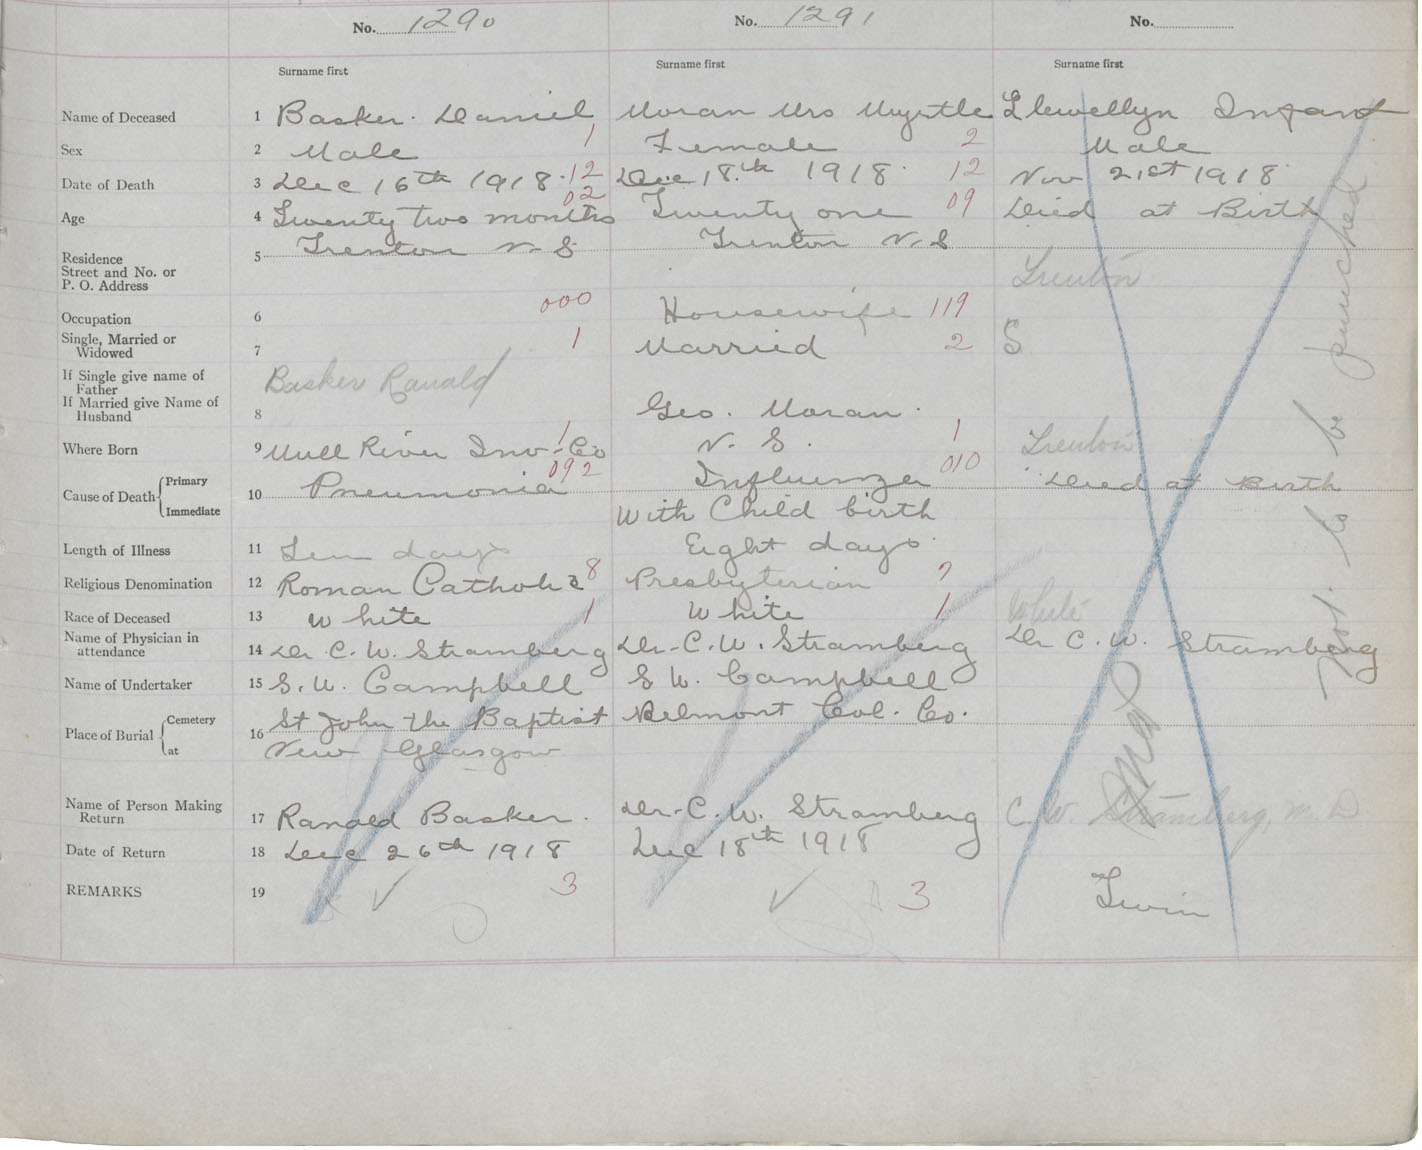 No. 1290 No. 1291 No.
Surname first Surname first Surname first
Name of Deceased 1 Basker. Daniel Moran Mrs Myrtle Llewellyn Infant
Sex 2 Male 1 Female 2 Male
Date of Death 3 Dec 16th 1918. 12 Dec 18.th 1918. 12 Nov 21st 1918
Age 4 Twenty two months 02 Twenty one 09 Died at Birth
Residence
Street and No. or
P. O. Address
5 Trenton N. S Trenton N. S Trenton
Occupation 6 000 Housewife 119
Single, Married or
Widowed
7 1 Married 2 S
If Single give name of
Father
Basker Ranald
If Married give Name of
Husband
8 Geo. Moran.
Where Born 9 Mull River Inv-Co 1 N. S. 1 Trenton
Cause of Death Primary
Immediate
10 Pneumonia 092 Influenza 010 Died at Birth
With Child birth
Length of Illness 11 Ten days Eight days
Religious Denomination 12 Roman Catholic 8 Presbyterian 7
Race of Deceased 13 White 1 White 1 White
Name of Physician in
attendance
14 Dr. C. W. Stramberg Dr-C. W. Stramberg Dr C. W. Stramberg
Name of Undertaker 15 S. W. Campbell S W. Campbell
Place of Burial Cemetery
at
16 St John the Baptist Belmont Col. Co.
New Glasgow
Name of Person Making
Return
17 Ranald Basker. Dr-C. W. Stramberg C. W. Stramberg, M. D
Date of Return 18 Dec 26th 1918 Dec 18th 1918
REMARKS 19 3 3 Twin
Not to be punched